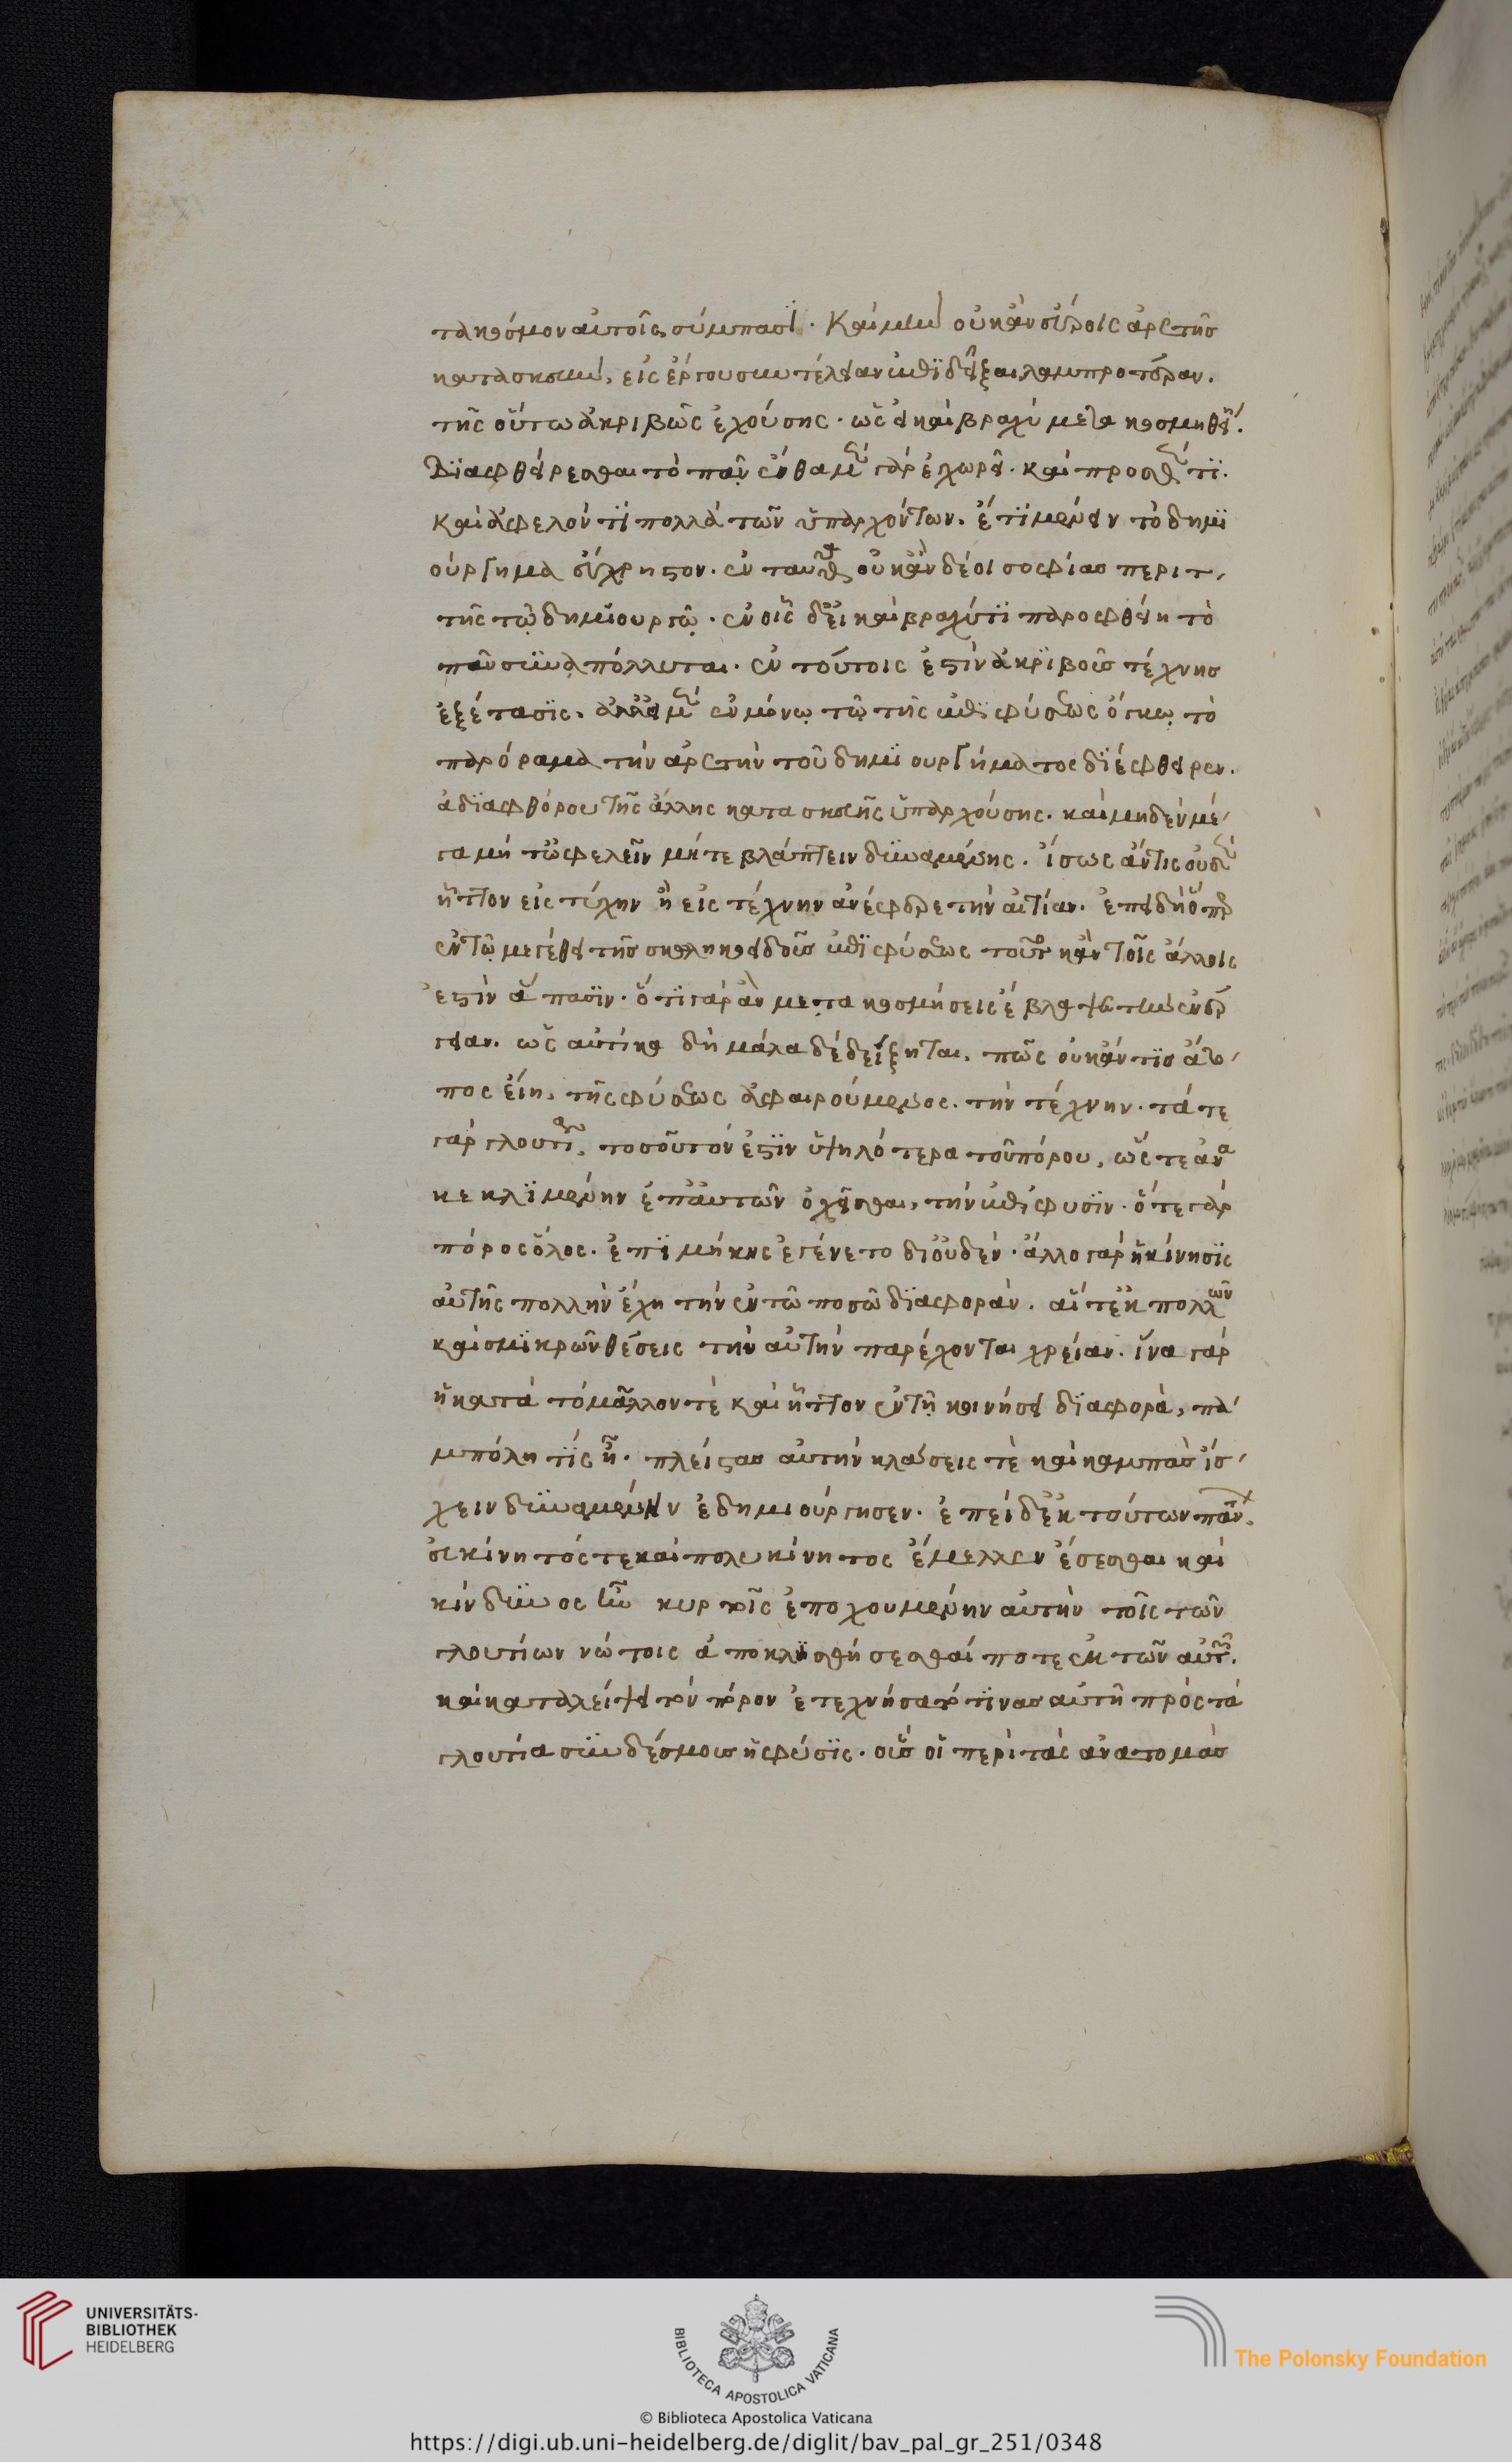 τακόσμον αὐτοῖς σύμπασϊ. Καὶ μὴν οὐκ ἂν εὕροις ἀρετῆς
κατασκευὴν, εἰς ἔργου συντέλειαν ἐπιδεῖξαι λαμπροτέραν.
τῆς οὕτω ἀκριβῶς ἐχούσης. ὡς εἰ καὶ βραχὺ μετακοσμηθεί.
Διαφθείρεσθαι τὸ πᾶν ἔνθα μὲν γὰρ ἐχωρεῖ. καὶ προσθέντϊ.
Καὶ ἀφελόντϊ πολλὰ τῶν ὑπαρχόντων. ἔτϊ μένειν τὸ δημϊ
ούργημα εὔχρηστον. ἐν ταῦθα οὐκ ἂν δέοι σοφίας περιτ
τῆς τῷ δημϊουργῷ. ἐν οἷς δὲ εἰ καὶ βραχύ τϊ παροφθείη τὸ
πᾶν συναπόλλυται. ἐν τούτοις ἐστὶν ἀκρϊβοῦς τέχνης
ἐξέτασϊς. ἀλλ' εἰ μὲν ἐν μόνῳ τῷ τῆς ἐπϊφύσεως ὄγκῳ τὸ
παρόραμα τὴν ἀρετὴν τοῦ δημϊουργήματος δϊέφθειρεν.
ἀδϊαφθόρου τῆς ἄλλης κατασκευῆς ὑπαρχούσης. καὶ μηδὲν μέ
γα μήτ' ὠφελεῖν μήτε βλάπτειν δυναμένης. ἴσως ἄν τις οὐδὲν
ἧττον εἰς τύχην ἢ εἰς τέχνην ἀνέφερε τὴν αἰτίαν. ἐπειδὴ ὅπερ
ἐν τῷ μεγέθει τῆς σκωληκοειδοῦς ἐπϊφύσεως τοῦτο κἀν τοῖς ἄλλοις
ἐστὶν ἅπασϊν. ὅ τϊ γὰρ ἂν μετακοσμήσεις ἔβλαψας τὴν ἐνέρ
γειαν. ὡς αὐτίκα δὴ μάλα δέδείξηται. πῶς οὐκ ἄν τϊς ἄτο
πος εἴη. τῆς φύσεως ἀφαιρούμενος. τὴν τέχνην. τά τε
γὰρ γλουτία, τοσοῦτόν ἐστϊν ὑψηλότερα τοῦ πόρου, ὥς τε ἀνα
κεκλϊμένην ἐπ' αὐτῶν ὀχεῖσθαι, τὴν ἐπίφυσϊν. ὅ τε γὰρ
πόρος ὅλος. ἐπϊμήκης ἐγένετο δι' οὐδὲν. ἄλλο γὰρ ἡ κίνησϊς
αὐτῆς πολλὴν ἔχη τὴν ἐν τῶ ποσῶ δϊαφορὰν. αἵ τ' ἐκ πολλῶν
καὶ σμϊκρῶν θέσεις τὴν αὐτὴν παρέχονται χρείαν. ἵνα γὰρ
ἡ κατὰ τὸ μᾶλλόν τὲ καὶ ἧττον ἐν τῇ κινήσει δϊαφορὰ, πα
μπόλη τίς ἦ. πλείστας αὐτὴν κλάσεις τὲ καὶ καμπὰς ἴσ
χειν δυναμένην ἐδημιούργησεν. ἐπεὶ δ' ἐκ τούτων πάντ.
εὐκίνητός τε καὶ πολυκίνητος ἔμελλεν ἔσεσθαι καὶ
κίνδυνος ἦν κυρτοῖς ἐποχουμένην αὐτὴν τοῖς τῶν
γλουτίων νώτοις ἀποκλησθήσεσθαί ποτε ἐκ τῶν αὐτῶν.
καὶ καταλείψει τὸν πόρον ἐτεχνήσατό τϊνας αὐτῆ πρὸς τὰ
γλουτία συνδέσμους ἡ φύσϊς. οὓς οἱ περὶ τὰς ἀνατομὰς
UNIVERSITÄTS-
BIBLIOTHEK
HEIDELBERG
BIBLIOTECA APOSTOLICA VATICANA
The Polonsky Foundation
© Biblioteca Apostolica Vaticana
https://digi.ub.uni-heidelberg.de/diglit/bav_pal_gr_251/0348